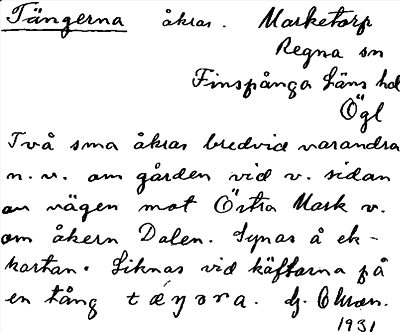 Tängerna åkrar. Marketorp
Regna sn
Finspånga läns hd
Ögl
Två små åkrar bredvid varandra
n.v. om gården vid v. sidan
av vägen mot Östra Mark v.
om åkern Dalen. Synas å ek-
kartan. Liknas vid käftarna på
en tång
1931